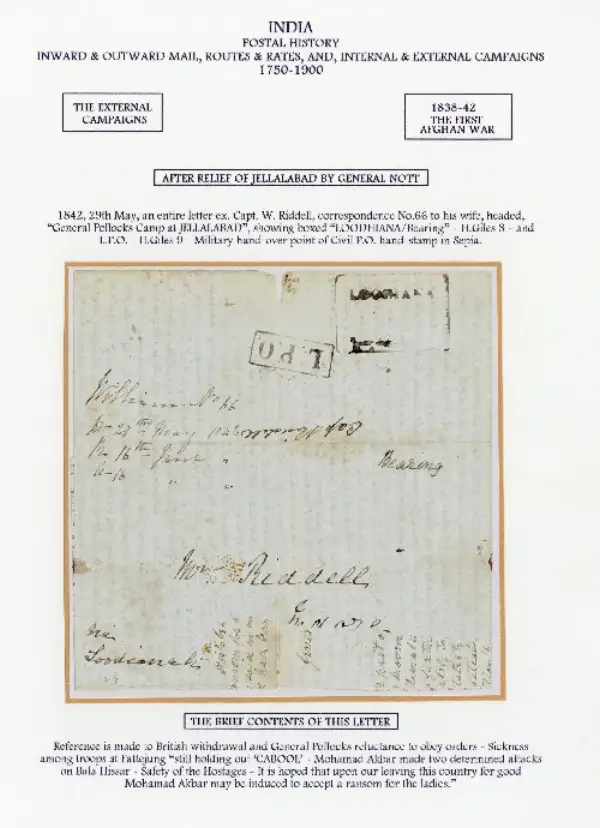 INDIA
POSTAL HISTORY
INWARD & OUTWARD MAIL, ROUTES & RATES, AND, INTERNAL & EXTERNAL CAMPAIGNS
1750-1900
THE EXTERNAL
CAMPAIGNS
1838-42
THE FIRST
AFGHAN WAR
AFTER RELIEF OF JELLALABAD BY GENERAL NOTT
1842, 29th May, an entire letter ex. Capt. W. Riddell, correspondence No.66 to his wife, headed,
"General Pollocks Camp at JELLALABAD", showing boxed "LOODHIANA/Bearing" - H.Giles 8 - and
L.P.O. - H.Giles 9 - Military hand-over point of Civil P.O. hand-stamp in Sepia.
LOODHIANA
L.P.O
William No 66
May
16th June
Bearing
Mrs Riddell
THE BRIEF CONTENTS OF THIS LETTER
Reference is made to British withdrawal and General Pollocks reluctance to obey orders - Sickness
among troops at Fattejung "still holding out 'CABOOL' - Mohamad Akbar made two determined attacks
on Bala Hissar - Safety of the Hostages - It is hoped that upon our leaving this country for good
Mohamad Akbar may be induced to accept a ransom for the ladies."